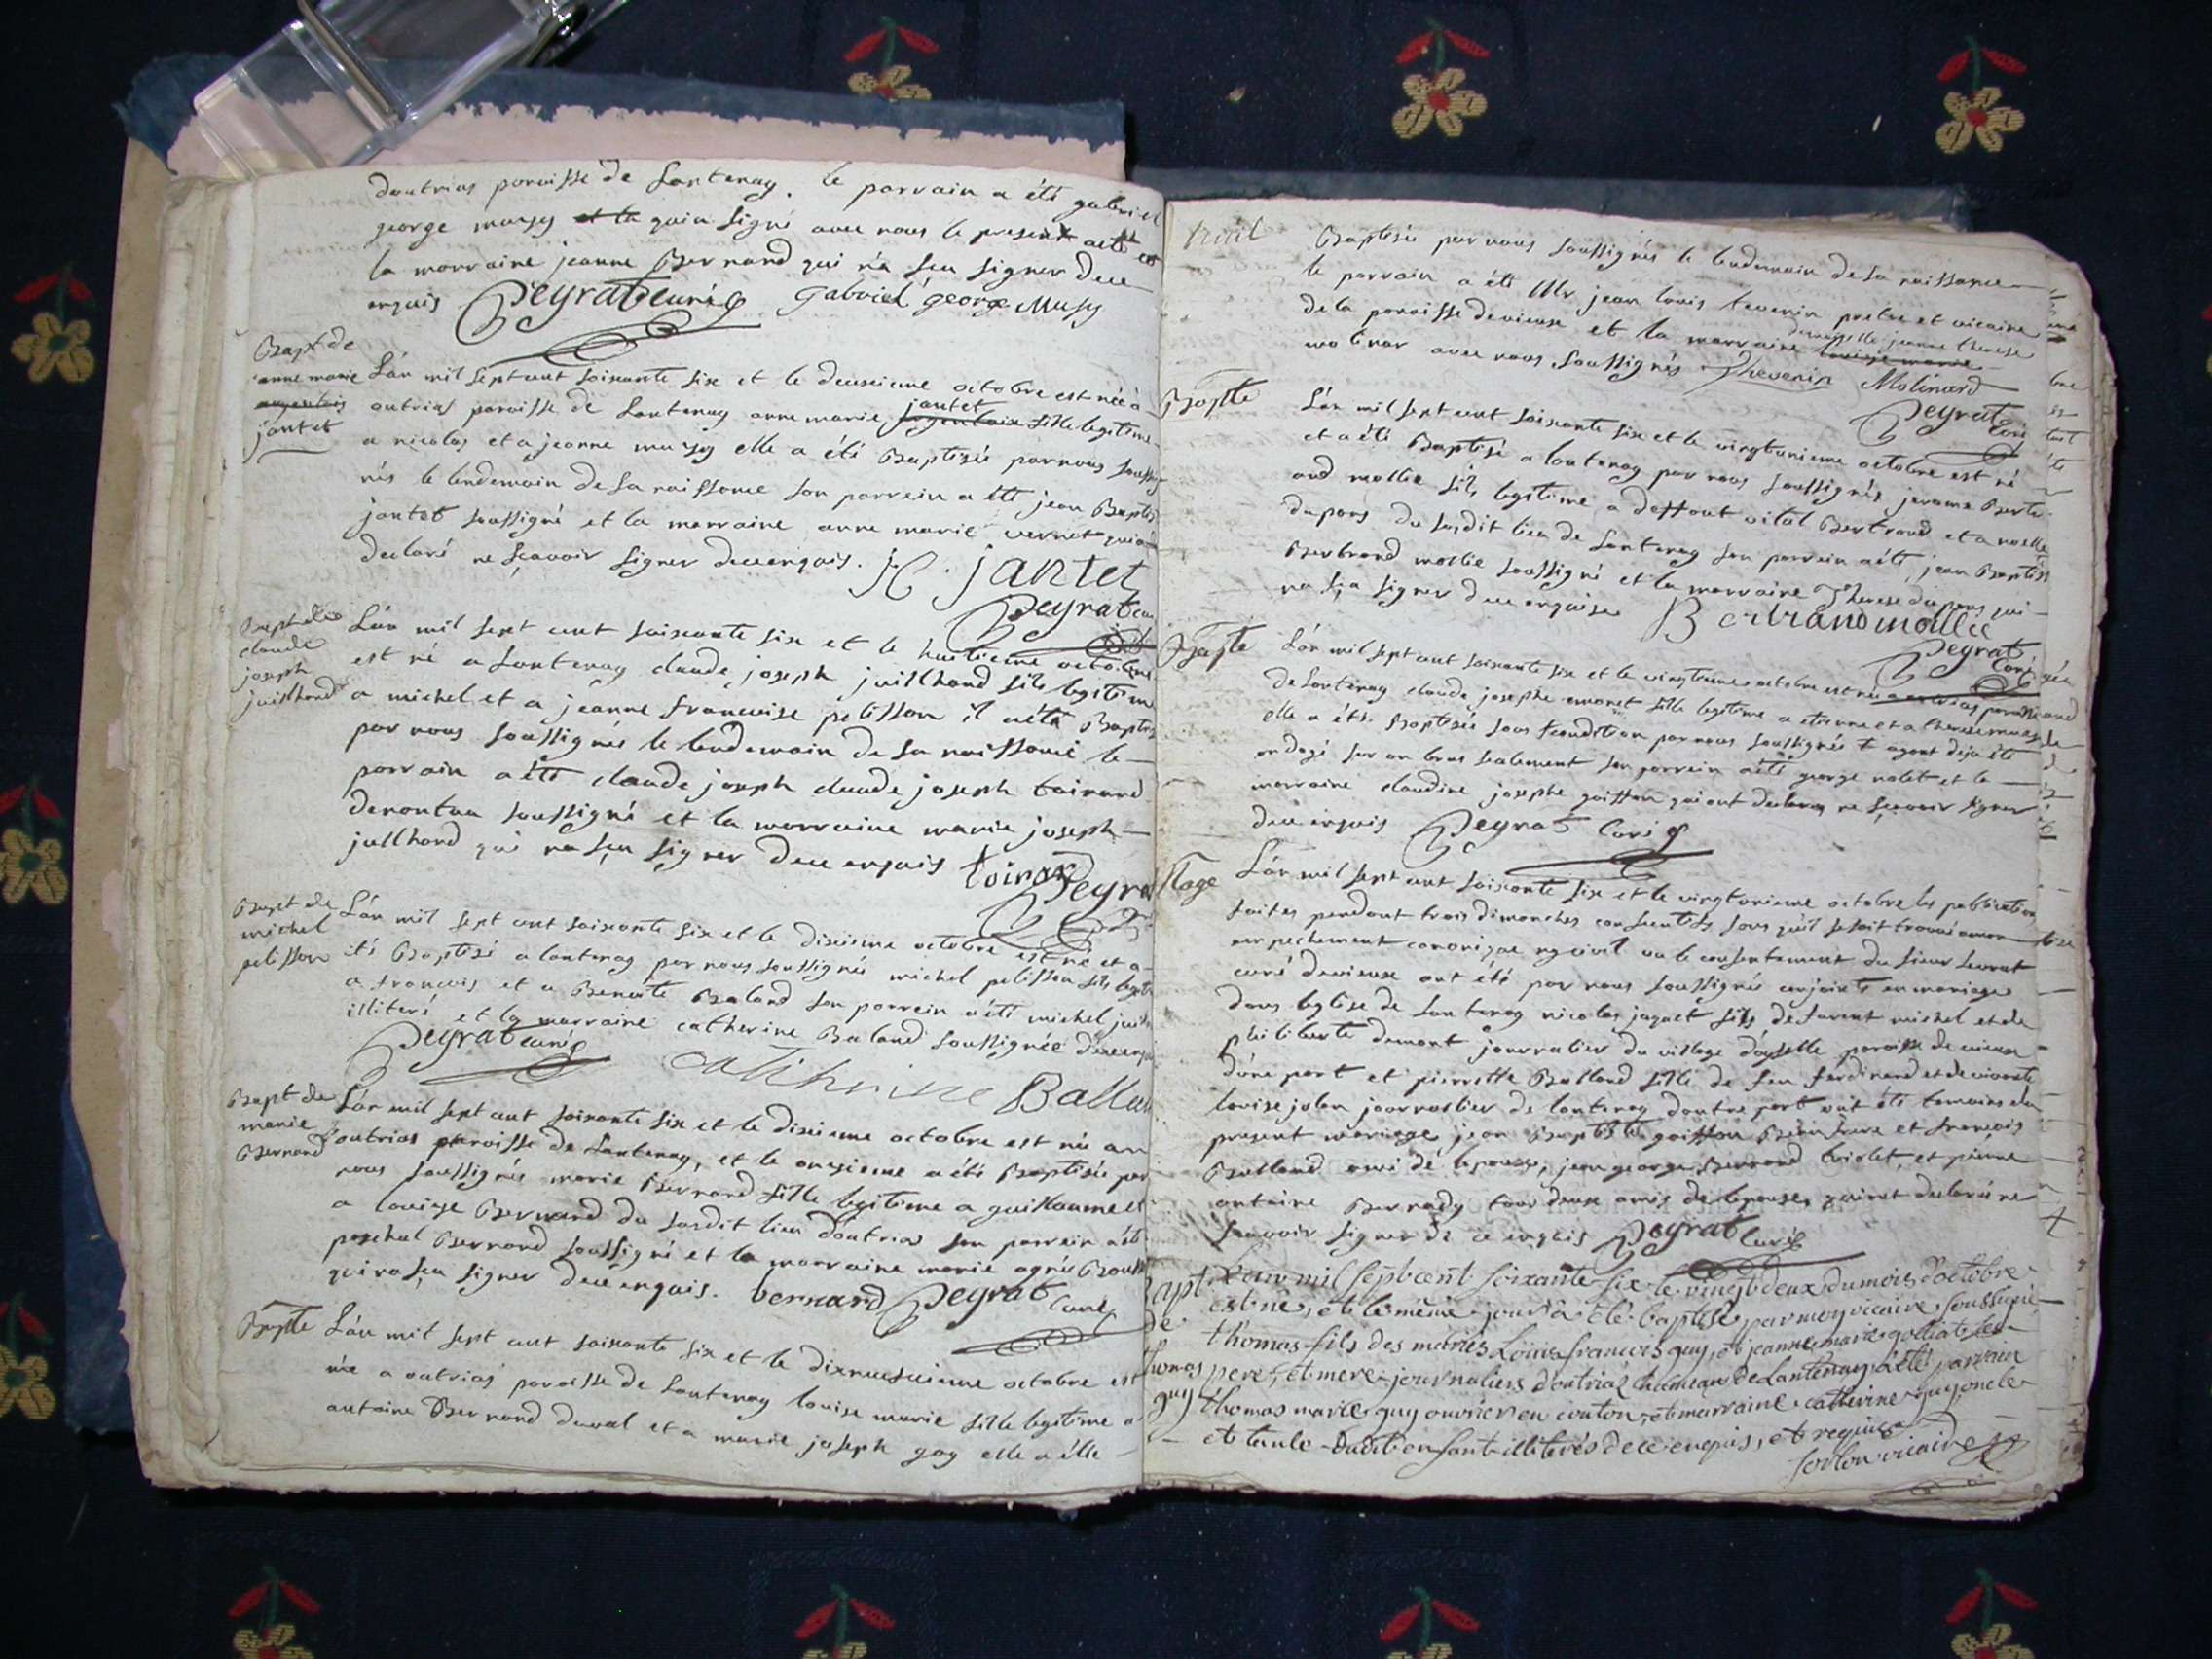 doutrias paroisse de Lantenay. le parrain a été gabriel
george musy et la qui a signé avec nous le present acte et
la marraine jeanne Bernard qui n'a sçu signer de ce
enquis Peyrat curé gabriel george Musy
Bapt de
anne marie
jantet
Lán mil sept cent soixante six et le deuxieme octobre est née à
outrias paroisse de Lantenay anne marie jantet fille legitime
a nicolas et a jeanne musy elle a été Baptisée par nous soussig
nés le lendemain de sa naissance son parrein a été jean Baptis
jantet soussigné et la marraine anne marie vernet qui a
declaré ne sçavoir signer de ce enquis. jantet
Peyrat
Bapt de
claude
joseph
juilhard
Lán mil sept cent soixante six et le huitieme octobre
est né a Lantenay claude joseph juillhard fils legitime
a michel et a jeanne francoise pelisson il a été Baptis
par nous soussignés le lendemain de sa naissance le
parrain a été claude joseph claude joseph toinard
soussigné et la marraine marie joseph
jullhard qui na sçu signer de ce enquis toinard
Peyrat
Bapt de
michel
pelisson
Lán mil sept cent soixante six et le dixieme octobre est né et a
été Baptisé a lantenay par nous soussignés michel pelisson fils legit
a francois et a Benoite Baland son parrein a été michel
illiteré et la marraine catherine Baland soussignée de ce enqu
Peyrat curé Catherine Ballan
Bapt de
marie
Bernard
Lán mil sept cent soixante six et le dixieme octobre est née a
outrias paroisse de Lantenay, et le onzieme a été Baptisée par
nous soussignés marie Bernard fille legitime a guillaume et
a louise Bernard du susdit lieu doutrias son parrein a été
paschal Bernard soussigné et la marraine marie
qui na sçu signer de ce enquis. bernard Peyrat Curé
Bapte
Lán mil sept cent soixante six et le dixneuvieme octobre est
née a outrias paroisse de Lantenay louise marie fille legitime a
antoine Bernard duval et a marie joseph goy elle a été
Baptisée par nous soussignés le lendemain de sa naissance
le parrain a été Mr jean louis tevenin pretre et vicaire
de la paroisse de vieux et la marraine demoiselle jeanne therese
molinar avec nous soussignés Thevenin Molinard
Peyrat Curé
Bapte
Lán mil sept cent soixante six et le vingtunieme octobre est né
et a été Baptisé a lantenay par nous soussignés jerome Bertr
and mollie fils legitime a deffunt vital Bertrand et a
du susdit lieu de Lantenay son parrein a été jean Baptis
Bertrand mollie soussigné et la marraine Therese qui
na sça signer de ce enquise Bertrand mollie
Peyrat Curé
Bapte
Lán mil sept cent soixante six et le octobre est née a outrias paroisse
de Lantenay claude josephe emonet fille legitime a etienne et a therese musy
elle a été Baptisée sous condition par nous soussignés ayant deja été
ondoyé sur un bras seulement son parrein a été george nalet et la
marraine claudine josephe goiffon qui ont declarés ne sçavoir signer
de ce enquis Peyrat Curé
Lán mil sept cent soixante six et le vingtunieme octobre les publications
faites pendant trois dimanches consecutifs sans qu'il se soit trouvé aucun
empechement canonique ny civil vu le consentement du sieur
curé de vieux ont été par nous soussignés conjoints en mariage
dans leglise de Lantenay nicolas jaquet fils defunt michel et de
philiberte dumont journalier du village paroisse de vieux
d'une part et pierrette Balland fille de feu ferdinand et de vivante
louise jolan journalier de lantenay dautre part ont été temoins du
present mariage jean Baptiste goiffon et francois
Balland ami de lepouse, jean george Bernard et pierre
antoine Bernady tous deux amis de lepouse, qui ont declaré ne
scavoir signer de ce enquis Peyrat Curé
Bapt
de
thomas
guy
L'an mil sept cent soixante six le vingt deux du mois d'octobre
est né, et le même jour a été baptisé par moy vicaire soussigné
thomas fils des mariés Louis francois guy, et jeanne marie golliat ses
pere, et mere journaliers d'outriaz hameau de Lantenay a été parrain
thomas marie guy ouvrier en couton, et marraine catherine guy oncle
et tante dudit enfant illiterés de ce enquis, et requis
vicaire